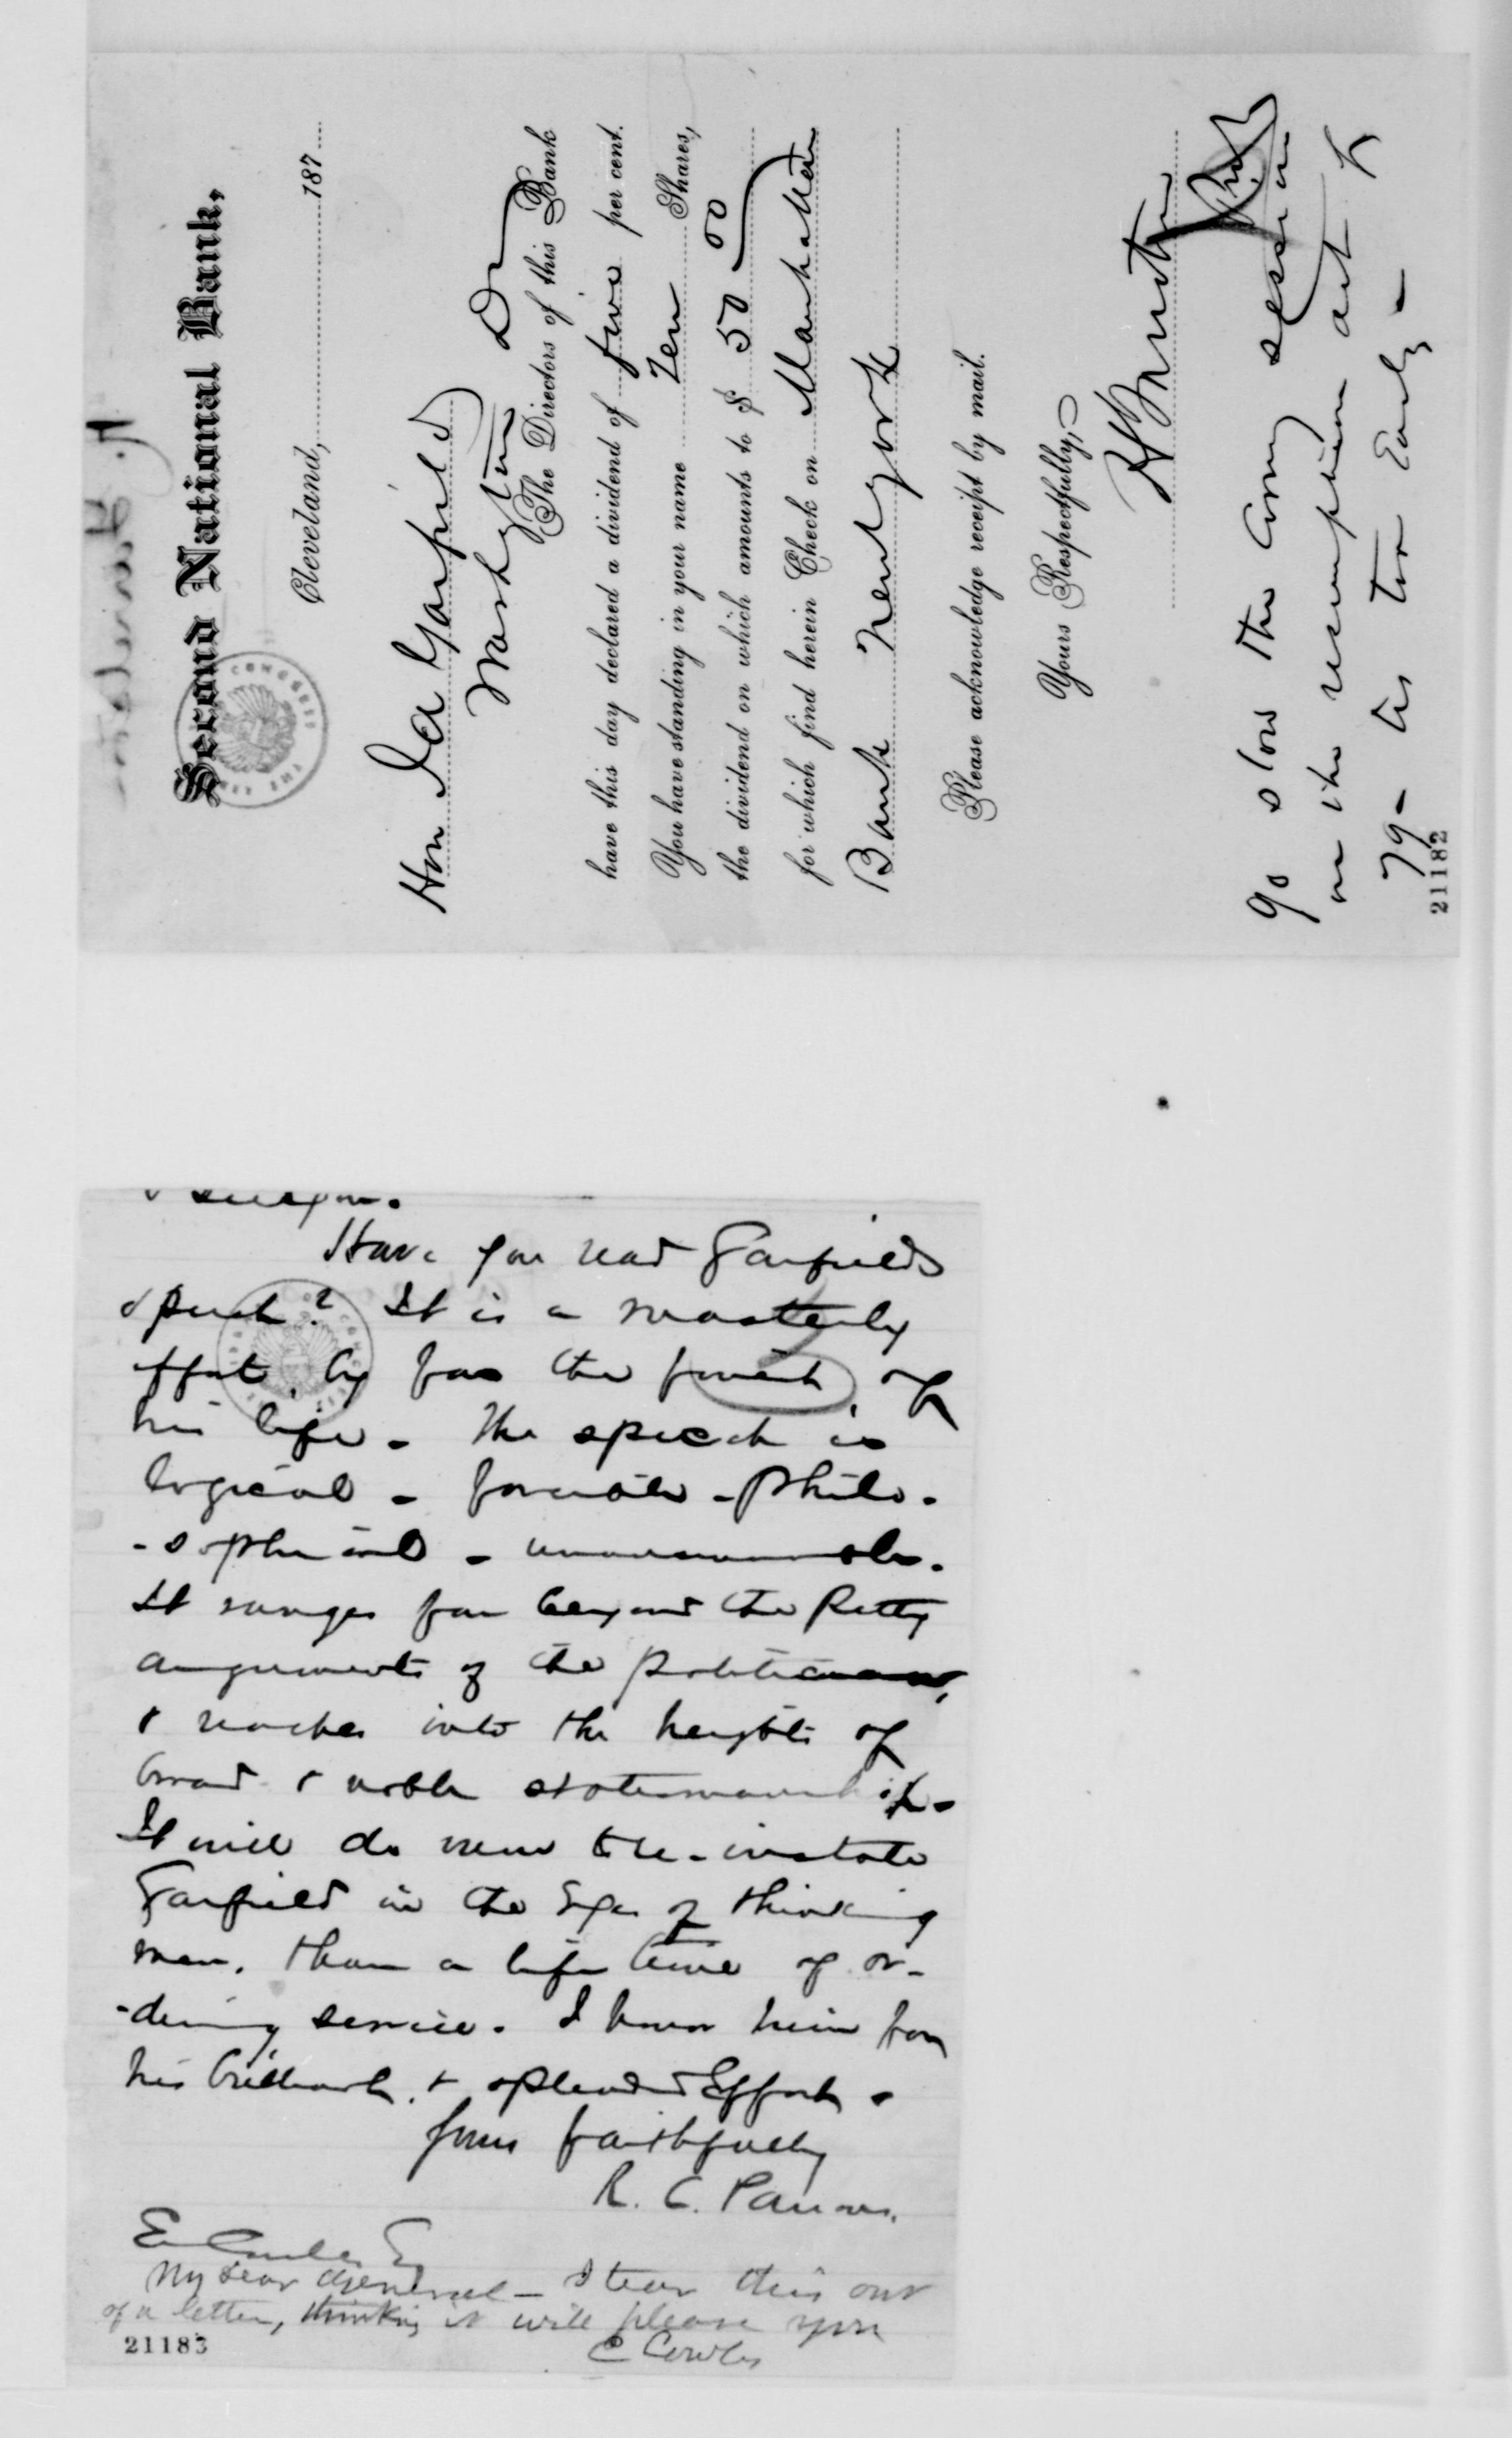 Second National Bank,
Cleveland, 187
Hon J A Garfield
Washington D
The Directors of this Bank
have this day declared a dividend of five per cent.
You have standing in your name Ten Shares,
the dividend on which amounts to $ 50 00
for which find herein Check on Manhattan
Bank New York
Please acknowledge receipt by mail.
Yours Respectfully,
go slow the Comg session
on the resumption act of
79 - tis too Early -
21182
Have you read Garfields
speech? It is a masterly
effort, by far the finest of
his life - The speech is
logical - forcible - philo-
-sophical - unanswerable.
It ranges far beyond the Petty
arguments of the politician,
& reaches into the heights of
broad & noble statesmanship -
It will do more to re-instate
Garfield in the Eyes of thinking
men, than a life time of or-
-dinary service. I honor him for
his brilliant & splendid Effort -
Yours faithfully
R. C. Parsons.
E Cowles Esq
My dear General - I tear this out
of a letter, thinking it will please you
E Cowles
21183